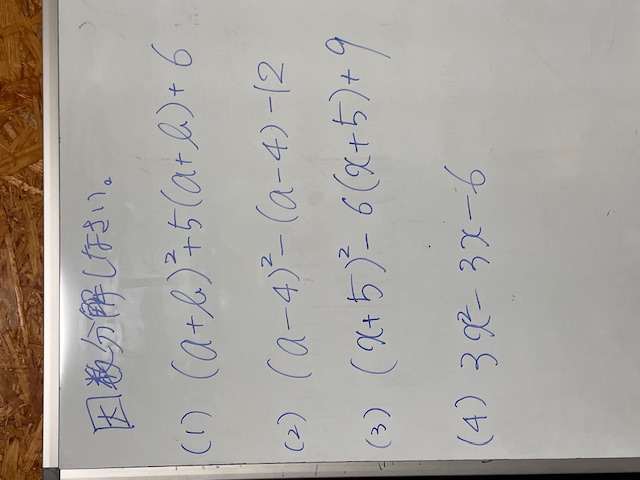 因数分解しなさい。
(1) (a+b)²+5(a+b)+6
(2) (a-4)²-(a-4)-12
(3) (x+5)²-6(x+5)+9
(4) 3x²-3x-6